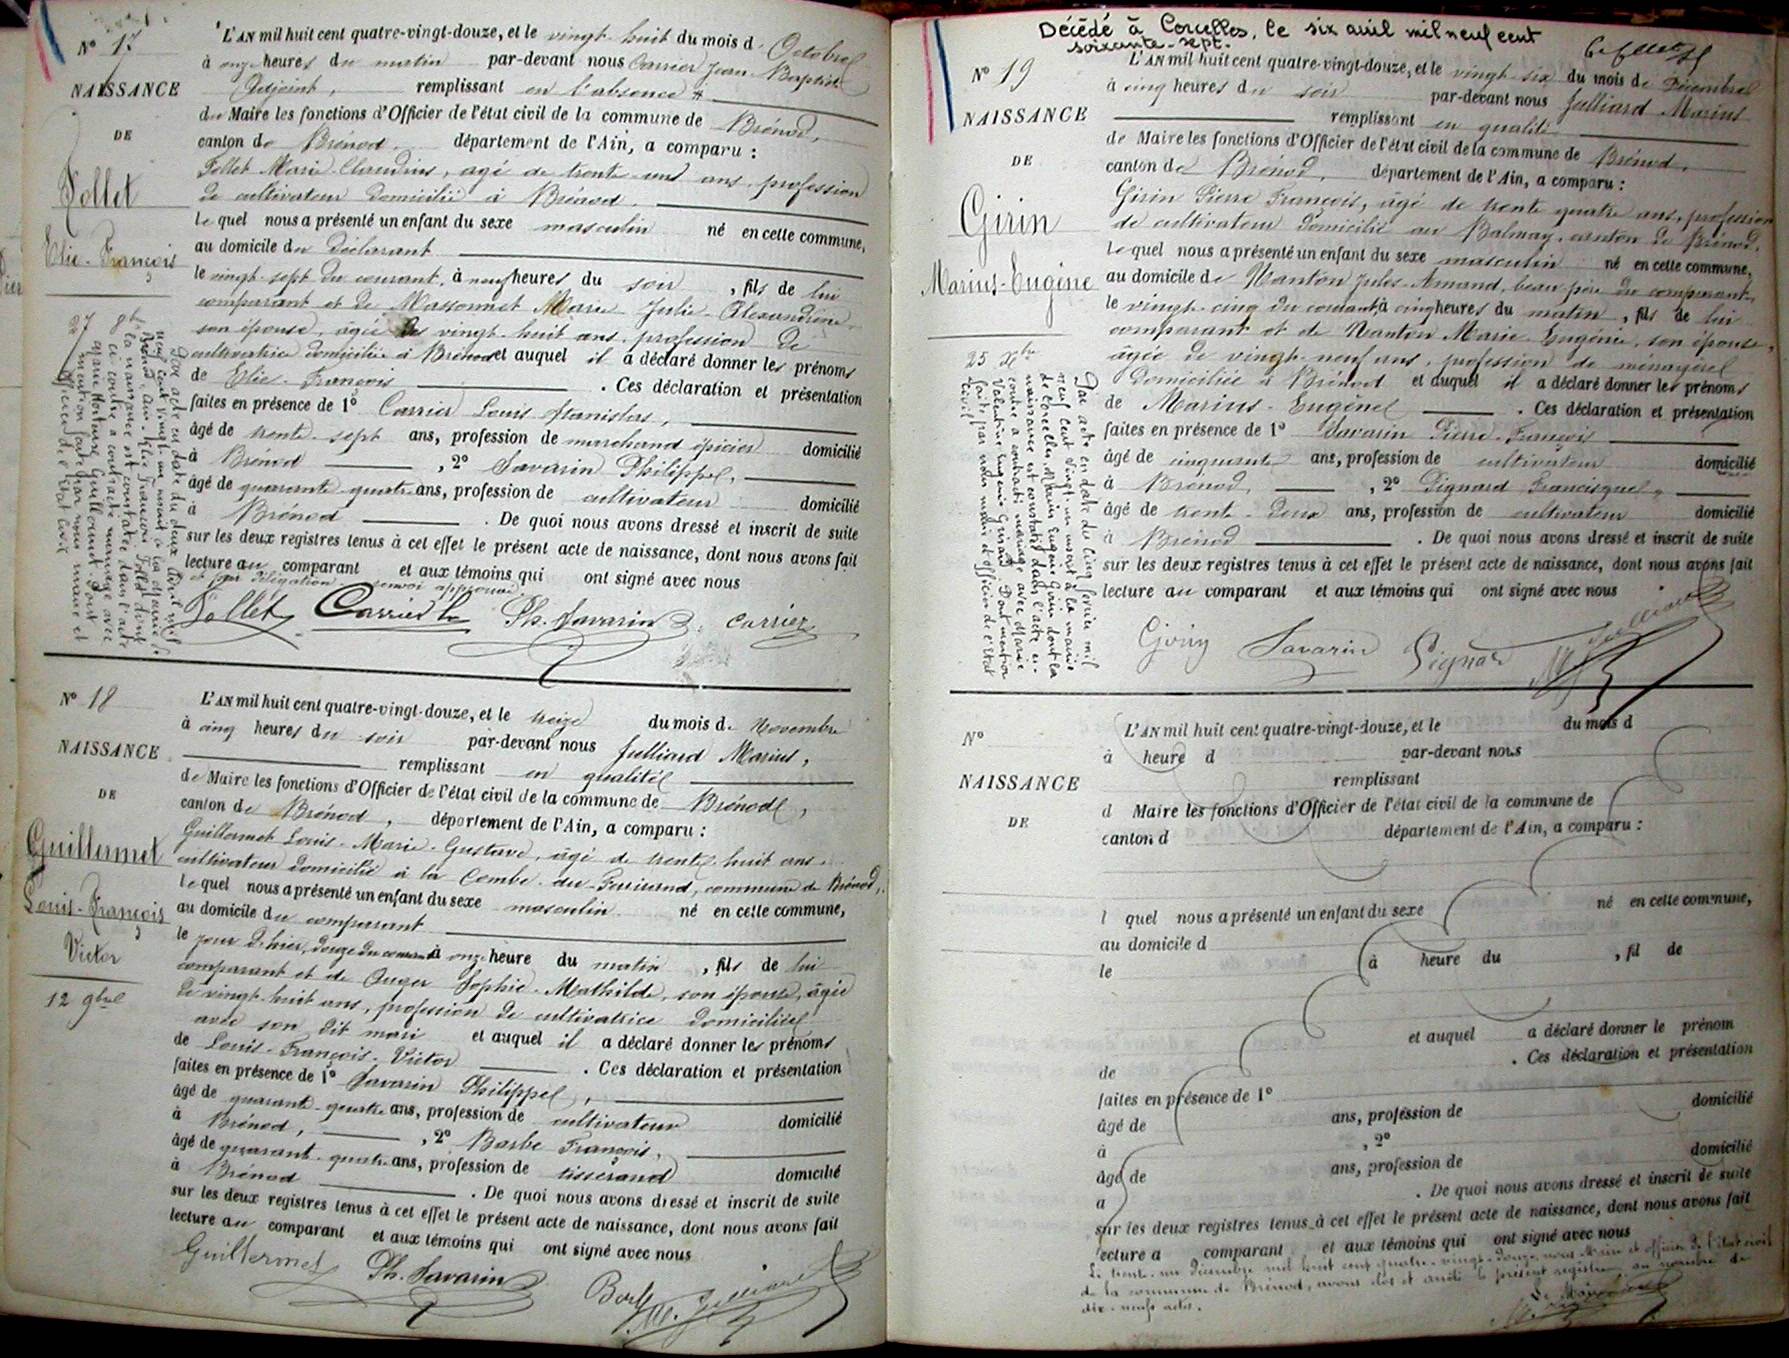 N° 17
NAISSANCE
DE
Follet
Elie-François
L'AN mil huit cent quatre-vingt-douze, et le vingt-huit du mois d'Octobre
à onze heures du matin par-devant nous Carrier Jean-Baptiste
Adjoint, remplissant en l'absence
du Maire les fonctions d'Officier de l'état civil de la commune de Brénod,
canton de Brénod, département de l'Ain, a comparu :
Follet Marie Claudius, agé de trente-un ans, profession
de cultivateur domicilié à Brénod,
lequel nous a présenté un enfant du sexe masculin né en cette commune,
au domicile du déclarant
le vingt-sept du courant, à neuf heures du soir, fils de lui
comparant et de Massonnet Marie Julie Alexandrine
son épouse, agée de vingt-huit ans, profession de
cultivatrice domiciliée à Brénod et auquel il a déclaré donner les prénoms
de Elie-François. Ces déclaration et présentation
faites en présence de 1° Carrier Louis Stanislas,
âgé de trente-sept ans, profession de marchand épicier domicilié
à Brénod, 2° Savarin Philippe,
âgé de quarante-quatre ans, profession de cultivateur domicilié
à Brénod. De quoi nous avons dressé et inscrit de suite
sur les deux registres tenus à cet effet le présent acte de naissance, dont nous avons fait
lecture au comparant et aux témoins qui ont signé avec nous
et par délégation. renvoi approuvé
Follet Carrier L. Ph. Savarin Carrier
27 8bre
Par acte en date du deux avril mil
neuf cent vingt-un inscrit à la mairie de
Brénod, Ain, Elie François Follet dont
la naissance est constatée dans l'acte
ci-contre a contracté mariage avec
Marie Hortense Guillermet dont
mention faite par nous maire et
officier de l'Etat civil
N° 18
NAISSANCE
DE
Guillermet
Louis-François
Victor
12 9bre
L'AN mil huit cent quatre-vingt-douze, et le treize du mois de Novembre
à cinq heures du soir par-devant nous Julliard Marius,
remplissant en qualité
de Maire les fonctions d'Officier de l'état civil de la commune de Brénod,
canton de Brénod, département de l'Ain, a comparu :
Guillermet Louis-Marie-Gustave, âgé de trente-huit ans,
cultivateur domicilié à la Combe-du-, commune de Brénod,
lequel nous a présenté un enfant du sexe masculin né en cette commune,
au domicile du comparant
le jour d'hier, douze du courant à onze heure du matin, fils de lui
comparant et de Auger Sophie-Mathilde, son épouse, âgée
de vingt-huit ans, profession de cultivatrice domiciliée
avec son dit mari et auquel il a déclaré donner les prénoms
de Louis-François-Victor. Ces déclaration et présentation
faites en présence de 1° Savarin Philippe,
âgé de quarante-quatre ans, profession de cultivateur domicilié
à Brénod, 2° Barbe François,
âgé de quarante-quatre ans, profession de tisserand domicilié
à Brénod. De quoi nous avons dressé et inscrit de suite
sur les deux registres tenus à cet effet le présent acte de naissance, dont nous avons fait
lecture au comparant et aux témoins qui ont signé avec nous
Guillermet Ph. Savarin Barbe M. Julliard
Décédé à Corcelles, le six avril mil neuf cent
soixante-sept.
N° 19
NAISSANCE
DE
Girin
Marius-Eugène
L'AN mil huit cent quatre-vingt-douze, et le vingt-six du mois de Décembre
à cinq heures du soir par-devant nous Julliard Marius
remplissant en qualité
de Maire les fonctions d'Officier de l'état civil de la commune de Brénod,
canton de Brénod, département de l'Ain, a comparu :
Girin Pierre François, âgé de trente quatre ans, profession
de cultivateur domicilié au Balmay, canton de Brénod,
lequel nous a présenté un enfant du sexe masculin né en cette commune,
au domicile de Nanton Jules-Armand, beau père du comparant,
le vingt-cinq du courant à cinq heures du matin, fils de lui
comparant et de Nanton Marie Eugénie, son épouse,
âgée de vingt-neuf ans, profession de ménagère
domiciliée à Brénod et auquel il a déclaré donner les prénoms
de Marius-Eugène. Ces déclaration et présentation
faites en présence de 1° Savarin Pierre-François
âgé de cinquante ans, profession de cultivateur domicilié
à Brénod, 2° Pignard Francisque,
âgé de trente-deux ans, profession de cultivateur domicilié
à Brénod. De quoi nous avons dressé et inscrit de suite
sur les deux registres tenus à cet effet le présent acte de naissance, dont nous avons fait
lecture au comparant et aux témoins qui ont signé avec nous
Girin Savarin Pignard M. Julliard
25 Xbre
Par acte en date du cinq février mil
neuf cent vingt-un inscrit à la mairie
de Corcelles, Marius Eugène Girin dont la
naissance est constatée dans l'acte ci-
contre a contracté mariage avec Marie
Valentine Eugénie. Dont mention
faite par nous maire et officier de l'Etat
civil
N°
NAISSANCE
DE
L'AN mil huit cent quatre-vingt-douze, et le du mois d
à heure d par-devant nous
remplissant
d Maire les fonctions d'Officier de l'état civil de la commune de
canton d département de l'Ain, a comparu :
l quel nous a présenté un enfant du sexe né en cette commune,
au domicile d
le à heure du , fil de
et auquel a déclaré donner le prénom
de . Ces déclaration et présentation
faites en présence de 1°
âgé de ans, profession de domicilié
à , 2°
âgé de ans, profession de domicilié
a . De quoi nous avons dressé et inscrit de suite
sur les deux registres tenus à cet effet le présent acte de naissance, dont nous avons fait
lecture a comparant et aux témoins qui ont signé avec nous
Le trente-un Décembre mil huit cent quatre-vingt-douze, nous Maire et officier de l'état civil
de la commune de Brénod, avons clos et arrêté le présent registre au nombre de
dix-neufs actes.
Le Maire